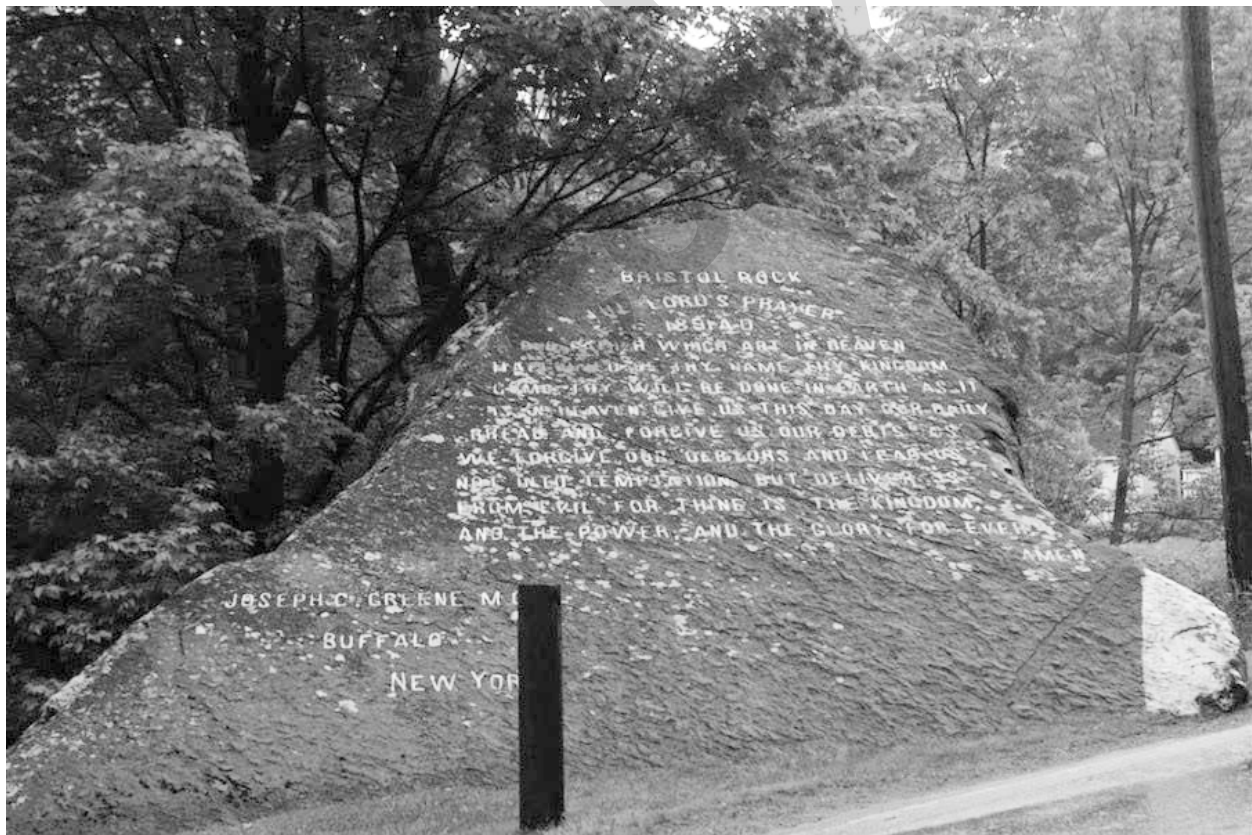 BRISTOL ROCK
THE LORD'S PRAYER
1891 A.D.
WHICH ART IN HEAVEN
THY NAME THY KINGDOM
COME THY WILL BE DONE IN EARTH AS IT
IS IN HEAVEN GIVE US THIS DAY OUR DAILY
BREAD AND FORGIVE US OUR DEBTS AS
WE FORGIVE OUR DEBTORS AND LEAD US
NOT INTO TEMPTATION BUT DELIVER US
FROM EVIL FOR THINE IS THE KINGDOM,
AND THE POWER, AND THE GLORY, FOR EVER
AMEN
JOSEPH C. GREENE M
BUFFALO
NEW YOR